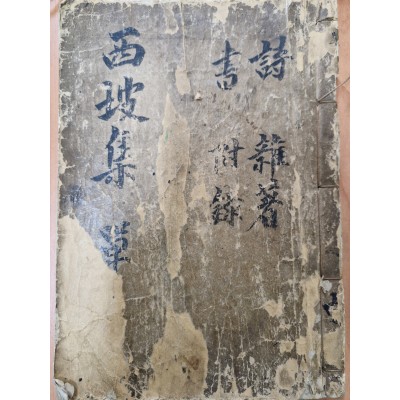 詩 雜著
書 附錄
西坡集 單